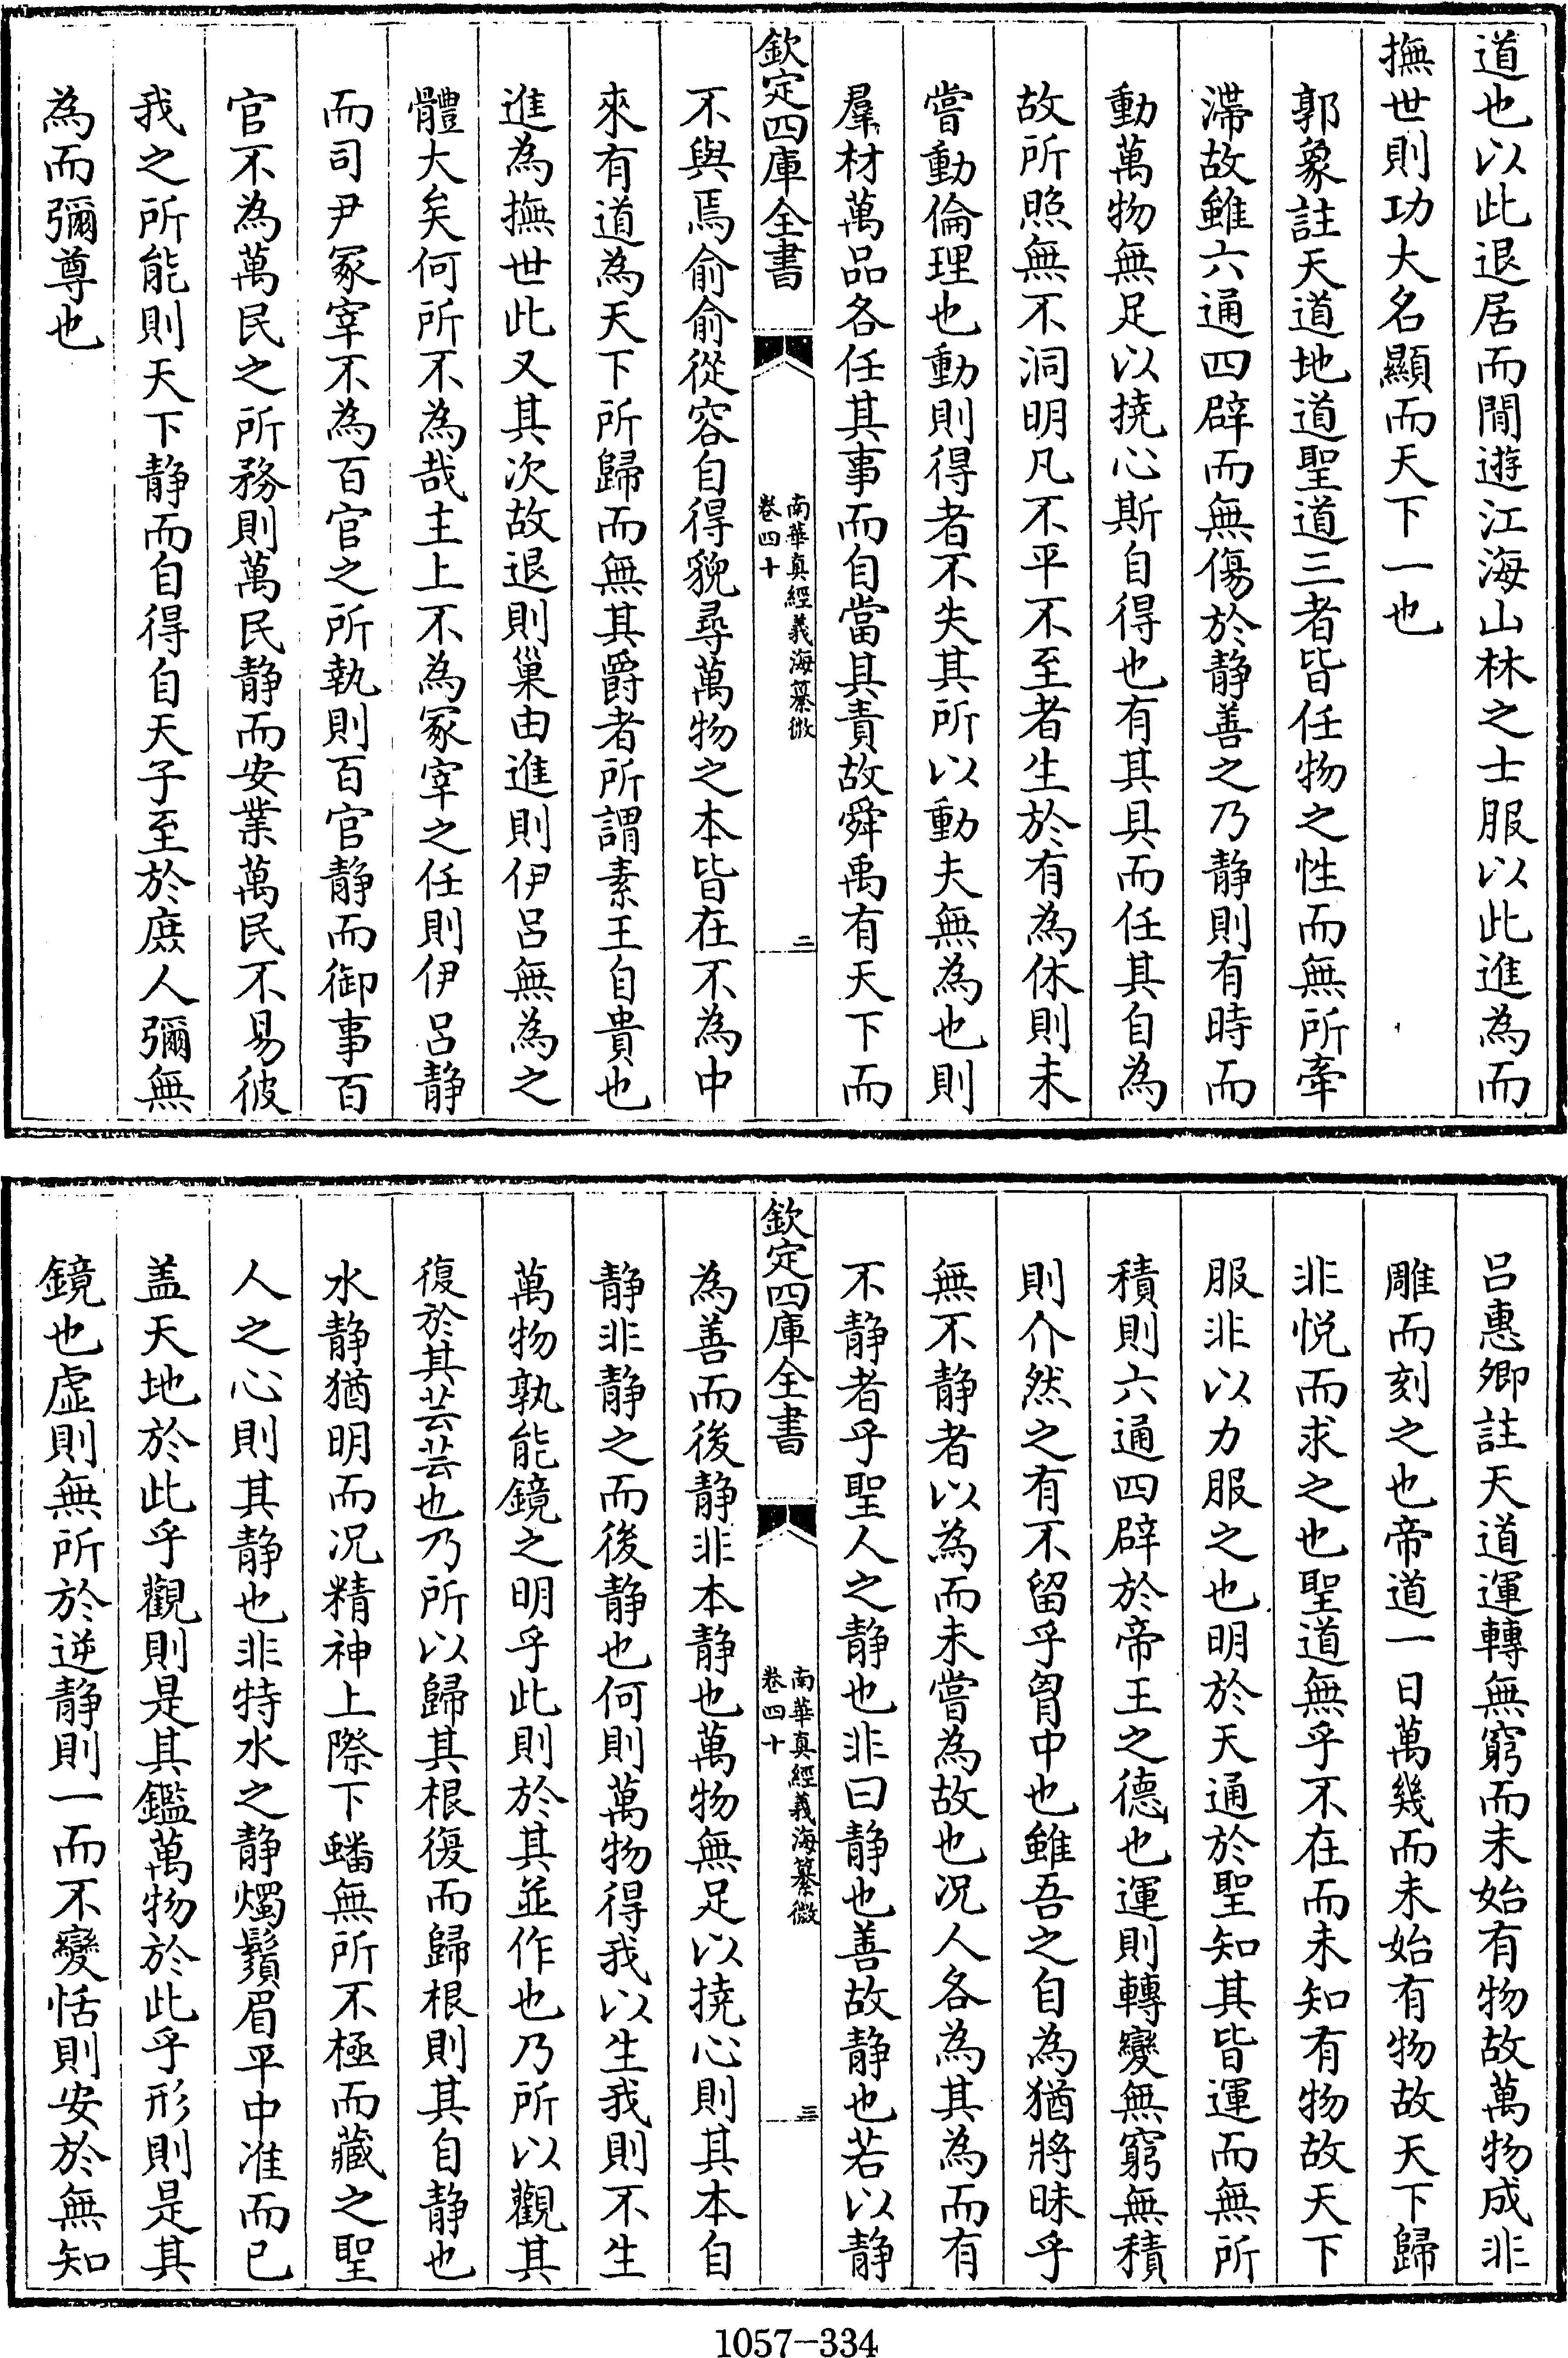 道也以此退居而閒遊江海山林之士服以此進為而
撫世則功大名顯而天下一也
郭象註天道地道聖道三者皆任物之性而無所牽
滯故雖六通四辟而無傷於静善之乃静則有時而
動萬物無足以撓心斯自得也有其具而任其自為
故所照無不洞明凡不平不至者生於有為休則未
嘗動倫理也動則得者不失其所以動夫無為也則
羣材萬品各任其事而自當其責故舜禹有天下而
欽定四庫全書
南華真經義海纂微
卷四十
二
不與焉俞俞從容自得貌尋萬物之本皆在不為中
來有道為天下所歸而無其爵者所謂素王自貴也
進為撫世此又其次故退則巢由進則伊呂無為之
體大矣何所不為哉主上不為冢宰之任則伊呂静
而司尹冢宰不為百官之所執則百官静而御事百
官不為萬民之所務則萬民静而安業萬民不易彼
我之所能則天下静而自得自天子至於庶人彌無
為而彌尊也
呂惠卿註天道運轉無窮而未始有物故萬物成非
雕而刻之也帝道一日萬幾而未始有物故天下歸
非悦而求之也聖道無乎不在而未知有物故天下
服非以力服之也明於天通於聖知其皆運而無所
積則六通四辟於帝王之德也運則轉變無窮無積
則介然之有不留乎胷中也雖吾之自為猶將昧乎
無不静者以為而未嘗為故也况人各為其為而有
不静者乎聖人之静也非曰静也善故静也若以静
欽定四庫全書
南華真經義海纂微
卷四十
三
為善而後静非本静也萬物無足以撓心則其本自
静非静之而後静也何則萬物得我以生我則不生
萬物孰能鏡之明乎此則於其並作也乃所以觀其
復於其芸芸也乃所以歸其根復而歸根則其自静也
水静猶明而况精神上際下蟠無所不極而藏之聖
人之心則其静也非特水之静燭鬚眉平中准而已
盖天地於此乎觀則是其鑑萬物於此乎形則是其
鏡也虚則無所於逆静則一而不變恬則安於無知
1057-334